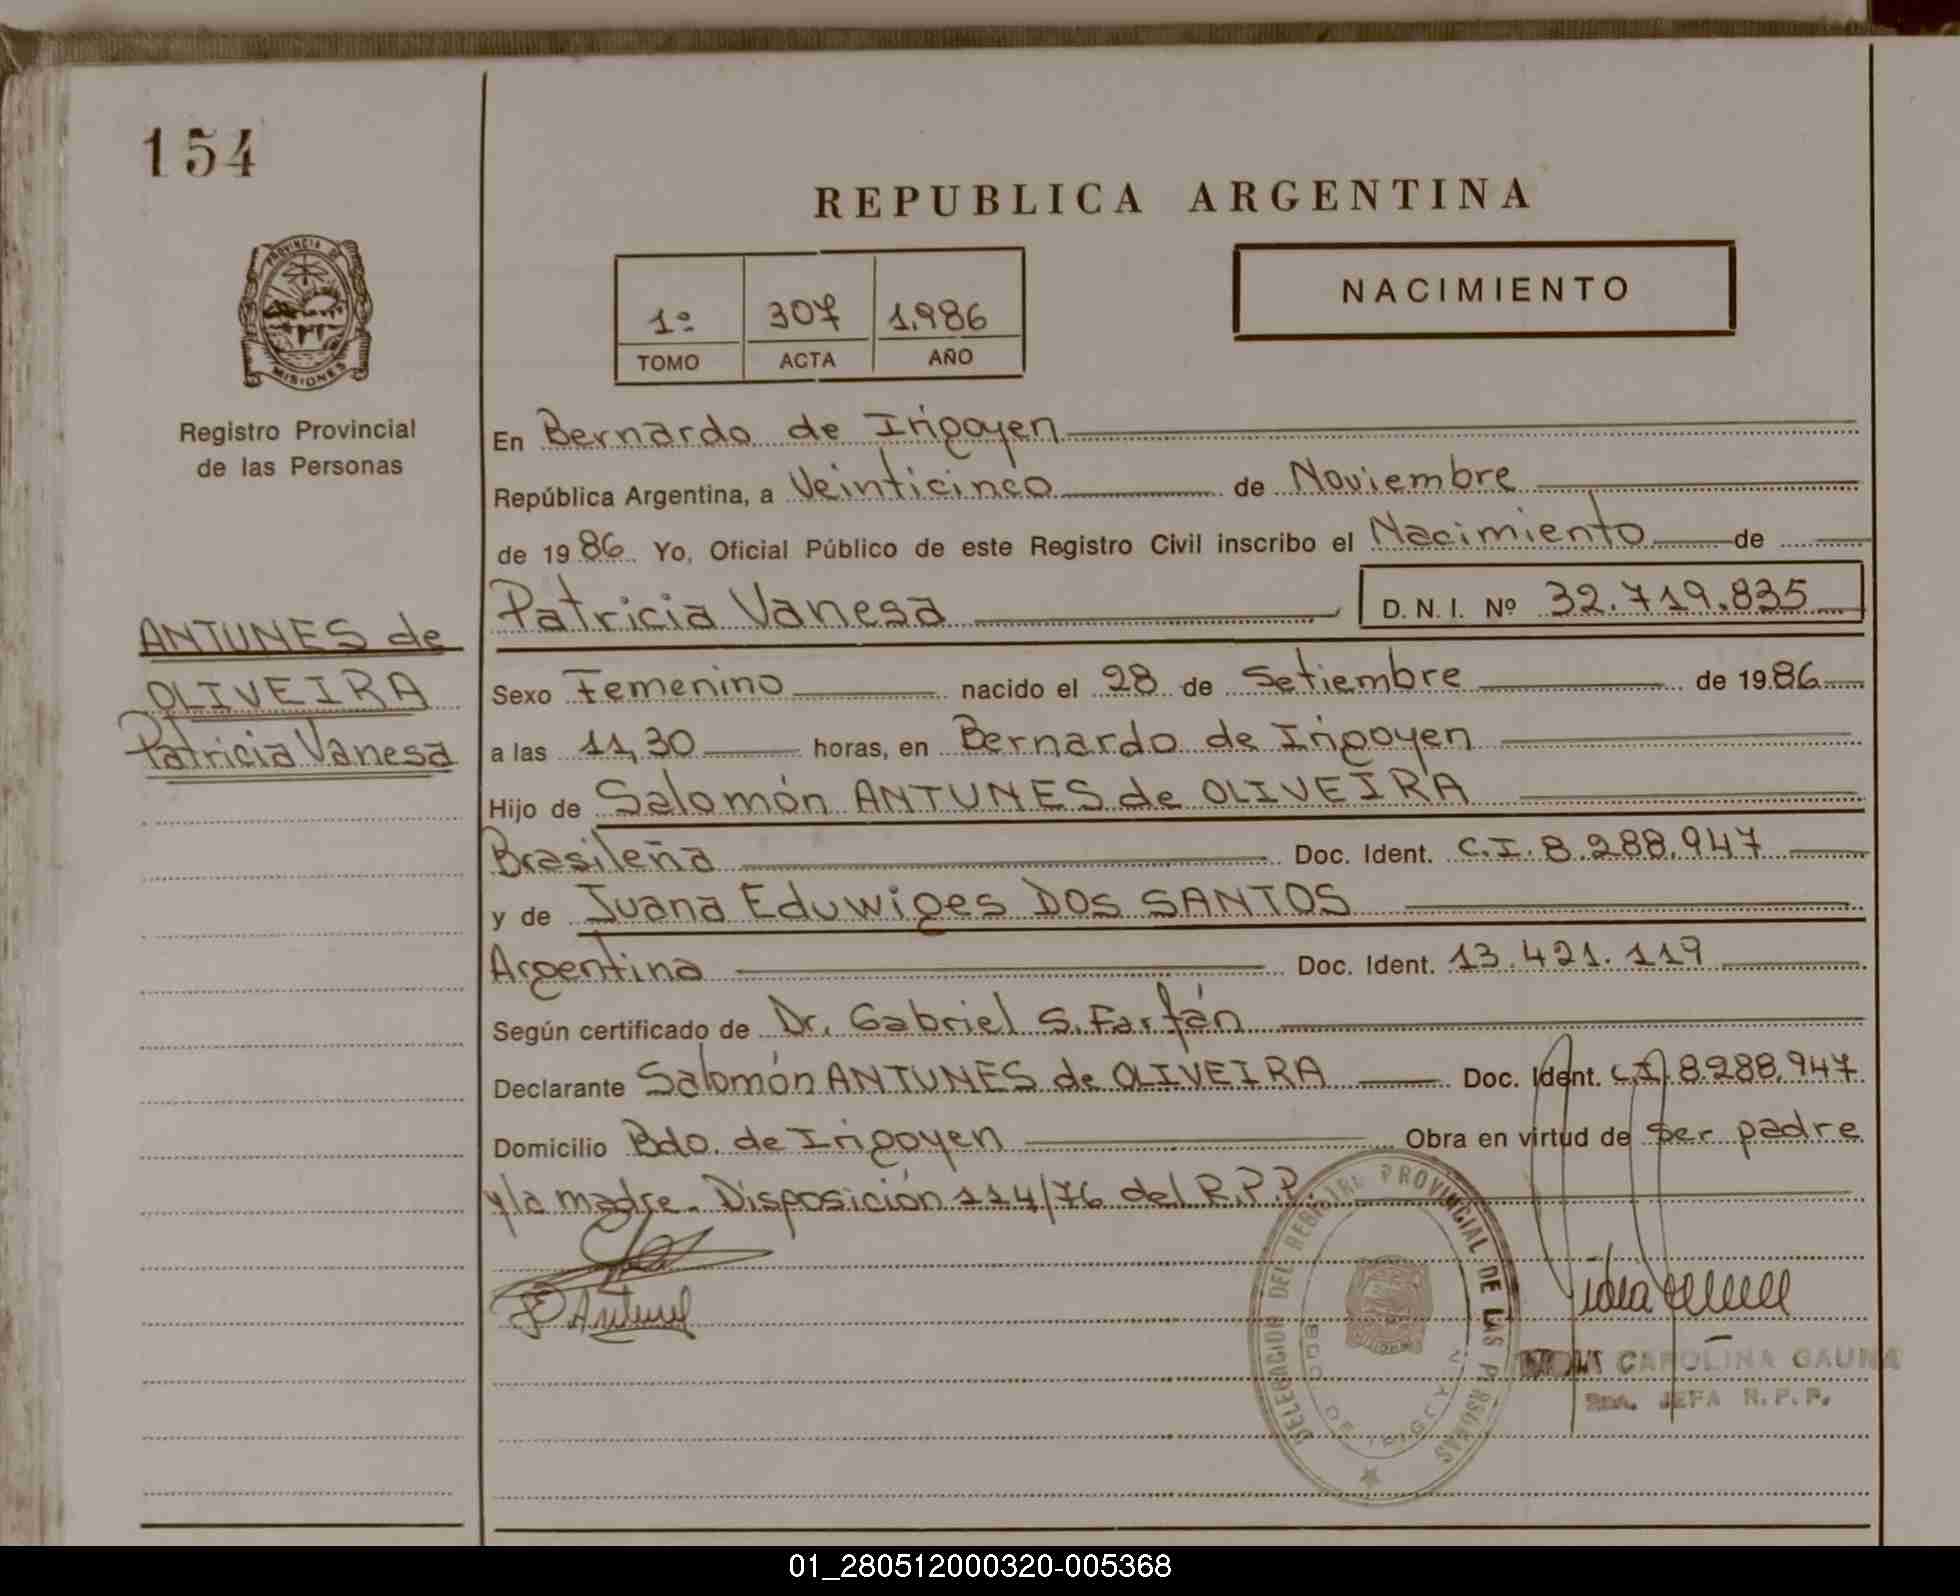 154
REPUBLICA ARGENTINA
PROVINCIA DE
MISIONES
Registro Provincial
de las Personas
1º 307 1.986
TOMO ACTA AÑO
NACIMIENTO
En Bernardo de Irigoyen
República Argentina, a Veinticinco de Noviembre
de 1986. Yo, Oficial Público de este Registro Civil inscribo el Nacimiento de
Patricia Vanesa D. N. I. Nº 32.719.835
ANTUNES de
OLIVEIRA
Patricia Vanesa
Sexo Femenino nacido el 28 de Setiembre de 1986
a las 11,30 horas, en Bernardo de Irigoyen
Hijo de Salomón ANTUNES de OLIVEIRA
Brasileña Doc. Ident. C.I. 8.288.947
y de Juana Eduwiges DOS SANTOS
Argentina Doc. Ident. 13.421.119
Según certificado de Dr. Gabriel S. Farfán
Declarante Salomón ANTUNES de OLIVEIRA Doc. Ident. C.I. 8.288.947
Domicilio Bdo. de Irigoyen Obra en virtud de ser padre
y/o madre. Disposición 114/76 del R.P.P.
DELEGACION DEL REGISTRO PROVINCIAL DE LAS PERSONAS
BDO. DE IRIGOYEN
CAROLINA GAUNA
JEFA R.P.P.
01_280512000320-005368